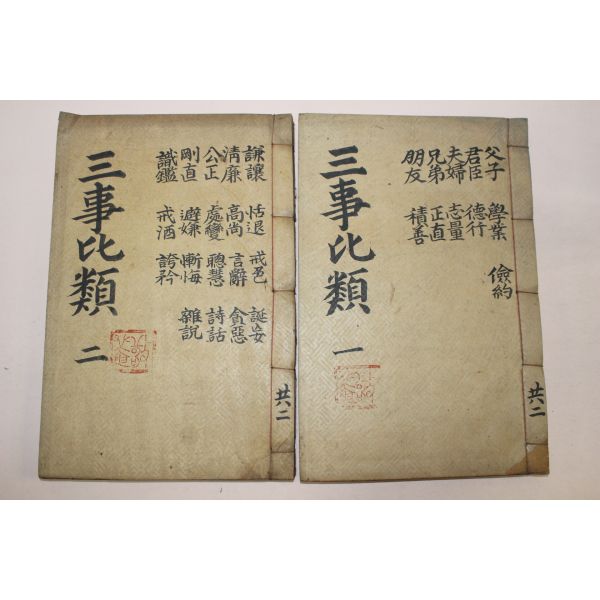 三事比類 一
父子 學業 儉約
君臣 德行
夫婦 志量
兄弟 正直
朋友 積善
共二
三事比類 二
謙讓 恬退 戒色 誕妄
淸廉 高尚 言辭 貪惡
公正 處變 聰慧 詩話
剛直 避嫌 慚悔 雜說
識鑑 戒酒 誇矜
共二